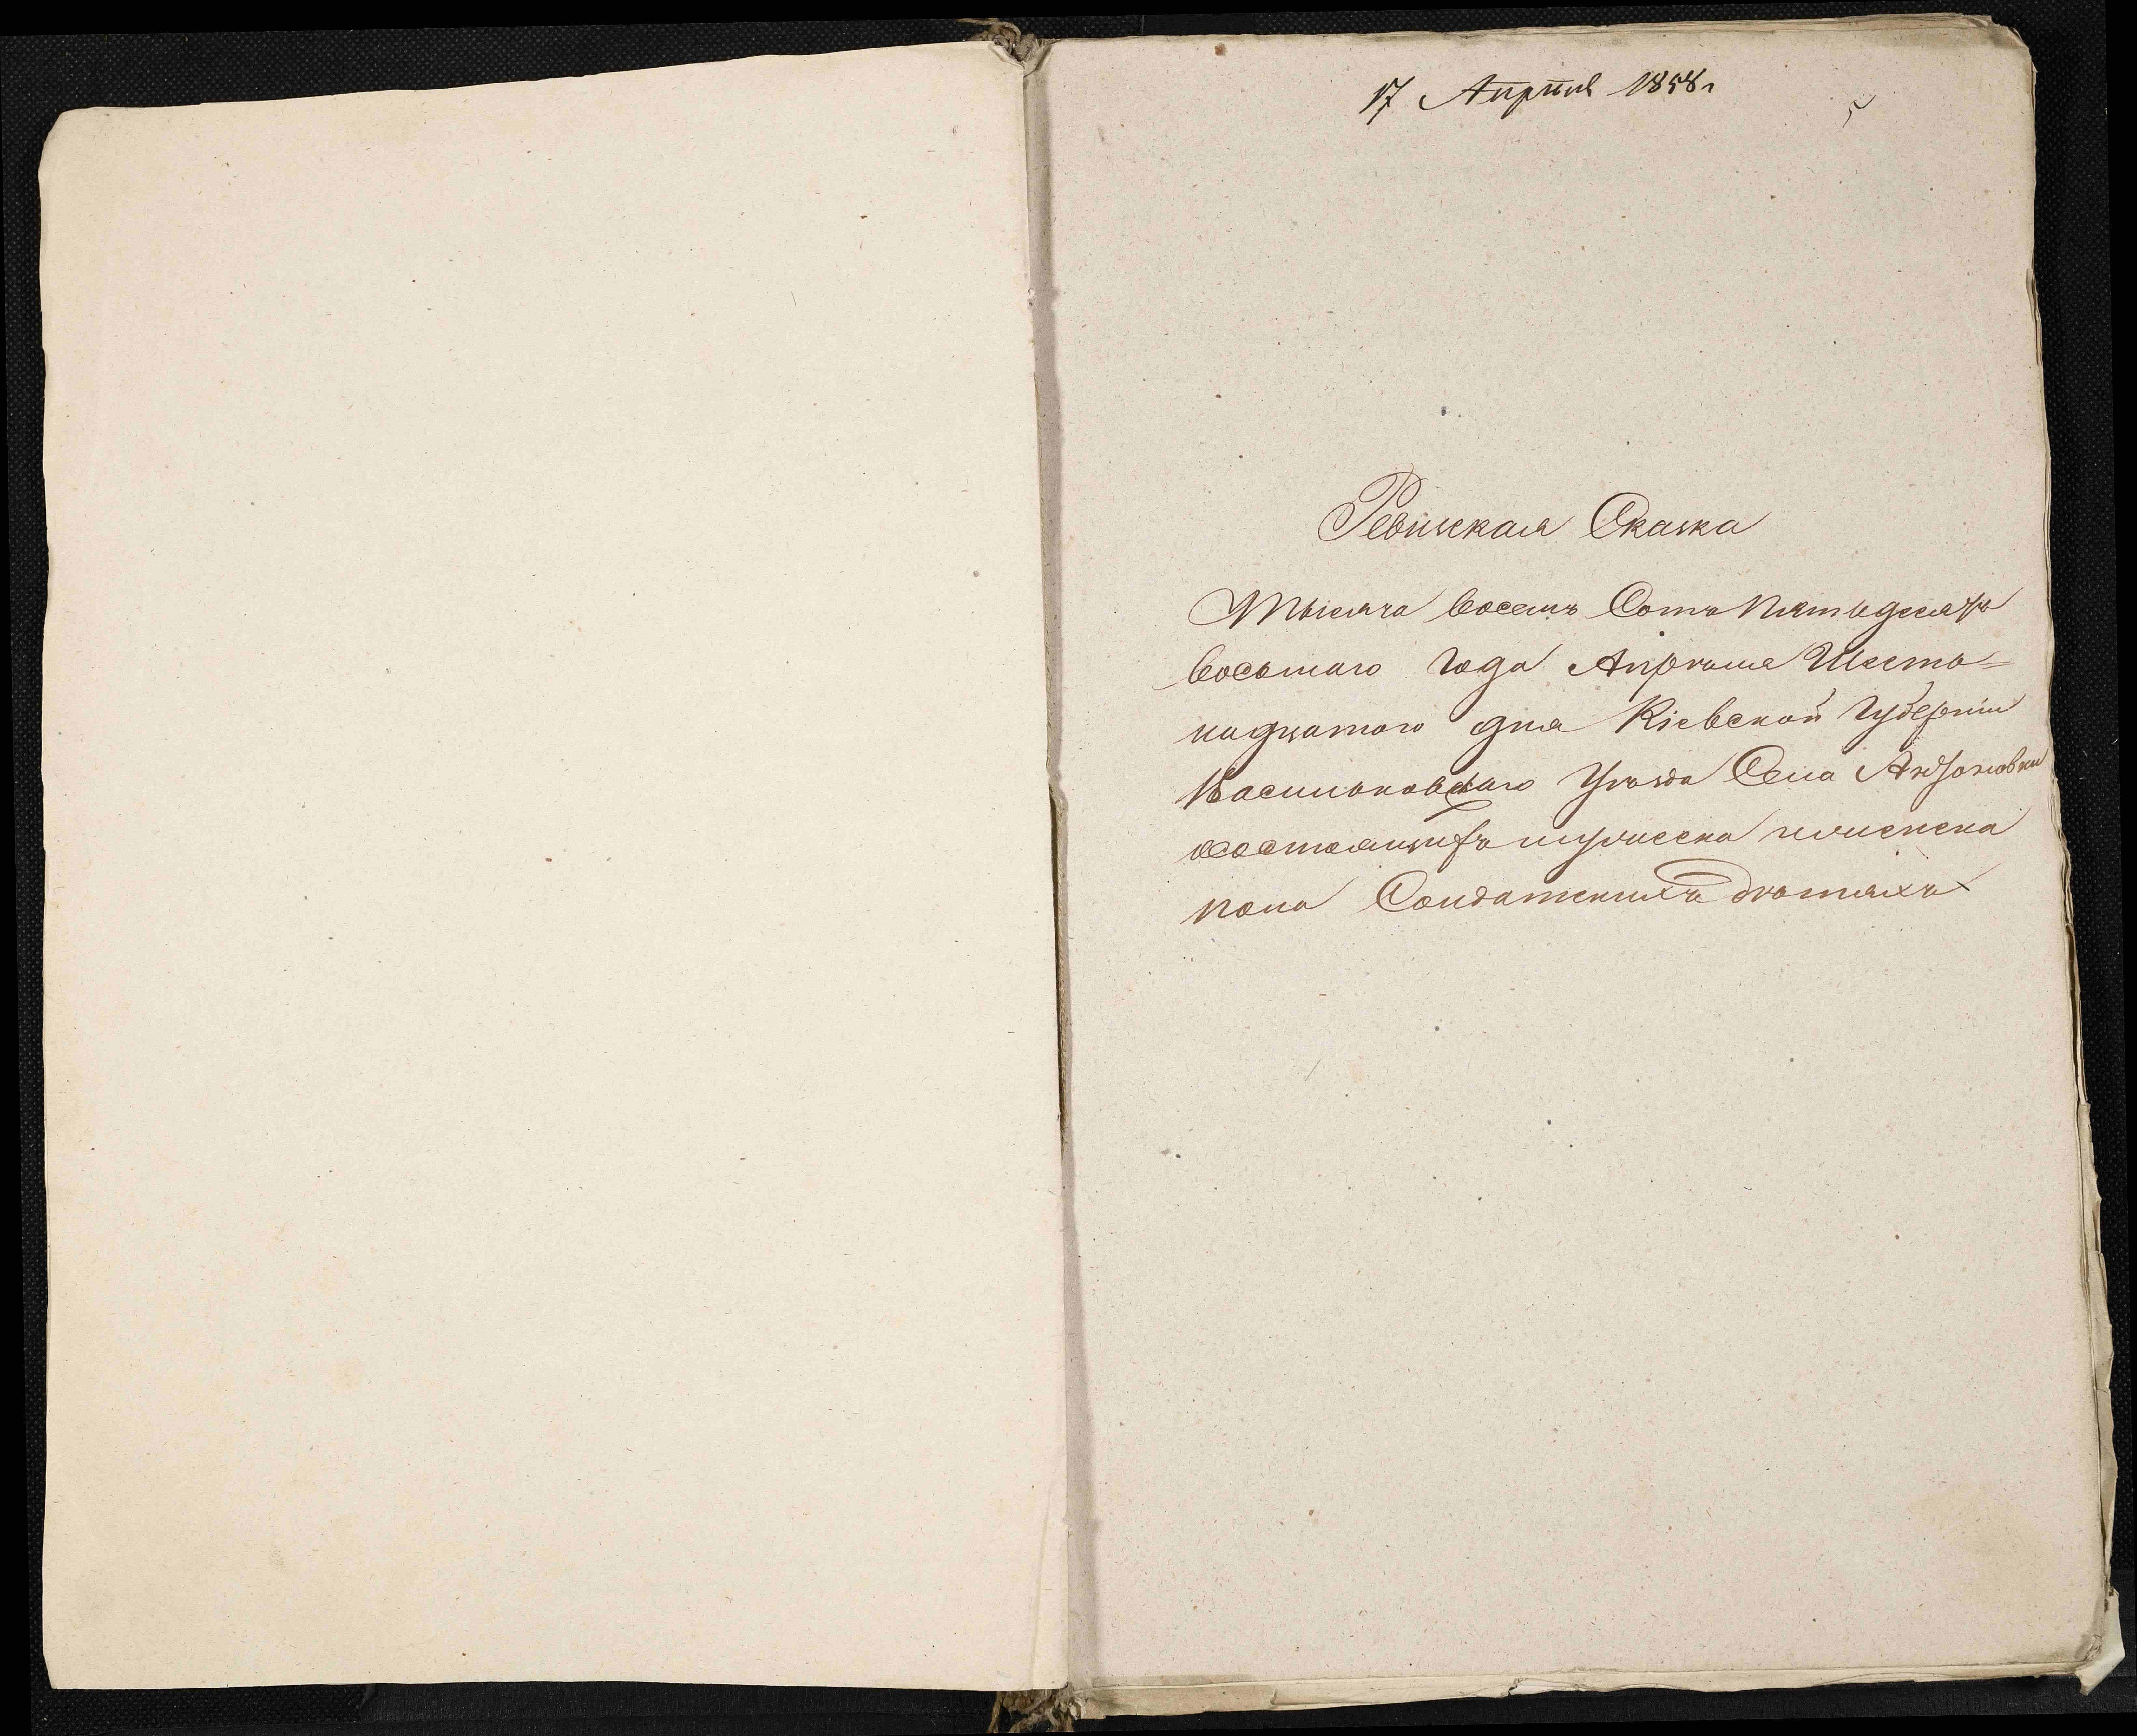 17 Апрѣля 1858 г
Ревизская Сказка
Тысяча восемъ Сотъ Пятьдесятъ
восьмаго Года Апрѣля Шесто=
надцатого дня Кіевской Губерніи
Васильковскаго Уѣзда Села Антоновки
состоящихъ мужеска и женска
пола Солдатскихъ дѣтяхъ